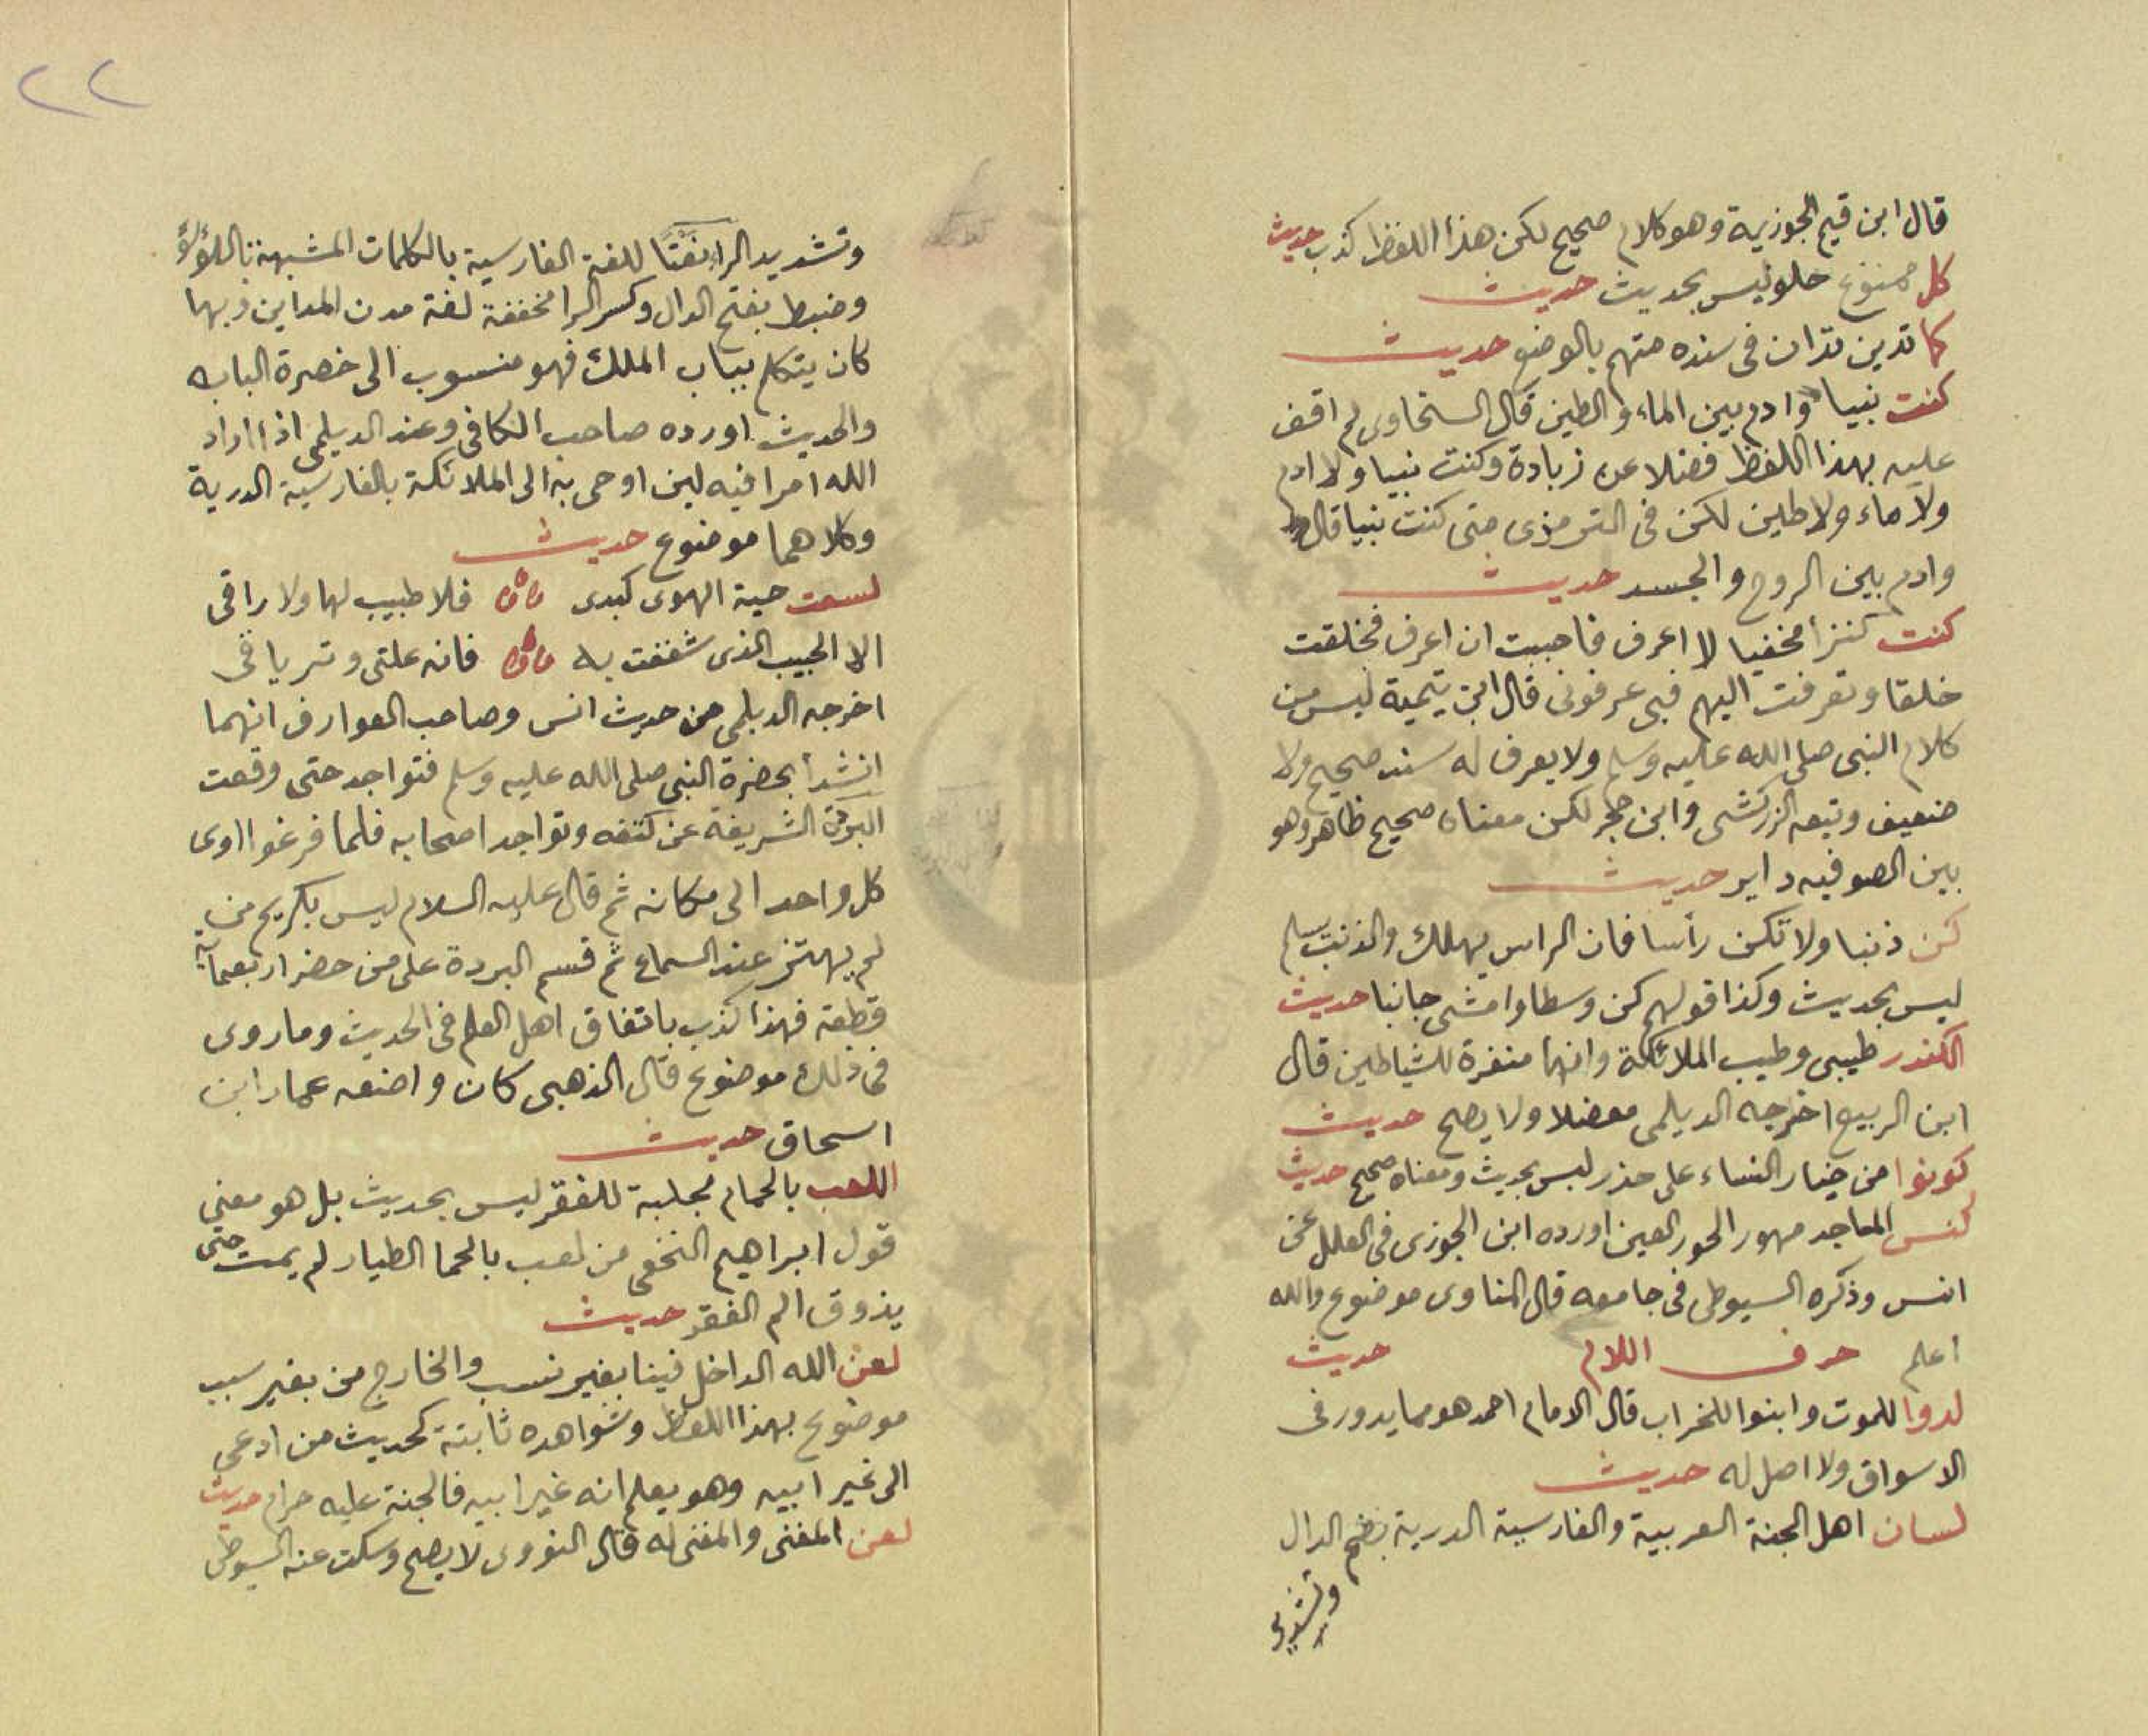 قال ابن قيم الجوزية وهو كلام صحيح لكن هذا اللفظ كذب حديث
كل ممنوع حلو ليس بحديث حديث
كما تدين تدان فى سنده متهم بالوضع حديث
كنت نبيا وادم بين الماء والطين قال السخاوى لم اقف
عليه بهذا اللفظ فضلا عن زيادة وكنت نبيا ولا ادم
ولا ماء ولا طين لكن فى الترمذى متى كنت نبيا قال
وادم بين الروح والجسد حديث
كنت كنزا مخفيا لا اعرف فاحببت ان اعرف فخلقت
خلقا وتعرفت اليهم فبى عرفونى قال ابن تيمية ليس من
كلام النبى صلى الله عليه وسلم ولا يعرف له سند صحيح ولا
ضعيف وتبعه الزركشى وابن حجر لكن معناه صحيح ظاهر وهو
بين الصوفيه داير حديث
كن ذنبا ولا تكن رأسا فان الراس يهلك والذنب يسلم
ليس بحديث وكذا قولهم كن وسطا وامشى جانبا حديث
الكندر طيبى وطيب الملائكة وانها منفرة للشياطين قال
ابن الربيع اخرجه الديلمى معضلا ولا يصح حديث
كونوا من خيار النساء على حذر ليس بحديث ومعناه صحيح حديث
كنس المساجد مهور الحور العين اورده ابن الجوزى فى العلل عن
انس وذكره السيوطى فى جامعه قال المناوى موضوع والله
اعلم حرف اللام حديث
لدوا للموت وابنوا للخراب قال الامام احمد هو مما يدور فى
الاسواق ولا اصل له حديث
لسان اهل الجنة العربية والفارسية الدرية بضم الدال
وتشديد
٢٢
وتشديد الرا نعتا للغة الفارسية بالكلمات المشبهة باللؤلؤ
وضبط بفتح الدال وكسر الرا مخففة لغة مدن المداين وبها
كان يتكلم بباب الملك فهو منسوب الى حضرة الباب
والحديث اورده صاحب الكافى وعند الديلمى اذا اراد
الله امرا فيه لين اوحى به الى الملائكة بالفارسية الدرية
وكلاهما موضوع حديث
لسعت حية الهوى كبدى فلا طبيب لها ولا راقى
الا الحبيب الذى شغفت به فانه علتى وترياقى
اخرجه الديلمى من حديث انس وصاحب العوارف انهما
انشدا بحضرة النبى صلى الله عليه وسلم فتواجد حتى وقعت
البردة الشريفة عن كتفه وتواجد اصحابه فلما فرغوا اوى
كل واحد الى مكانه ثم قال عليه السلام ليس بكريم من
لم يهتز عند السماع ثم قسم البردة على من حضر اربعمأية
قطعة فهذا كذب باتفاق اهل العلم فى الحديث وما روى
فى ذلك موضوع قال الذهبى كان واضعه عمار ابن
اسحاق حديث
اللعب بالحمام مجلبة للفقر ليس بحديث بل هو معنى
قول ابراهيم النخعى من لعب بالحما الطيار لم يمت حتى
يذوق الم الفقر حديث
لعن الله الداخل فينا بغير نسب والخارج من بغير سبب
موضوع بهذا اللفظ وشواهده ثابتة كحديث من ادعى
الى غير ابيه وهو يعلم انه غير ابيه فالجنة عليه حرام حديث
لعن المغنى والمغنى له قال النووى لا يصح وسكت عنه السيوطى